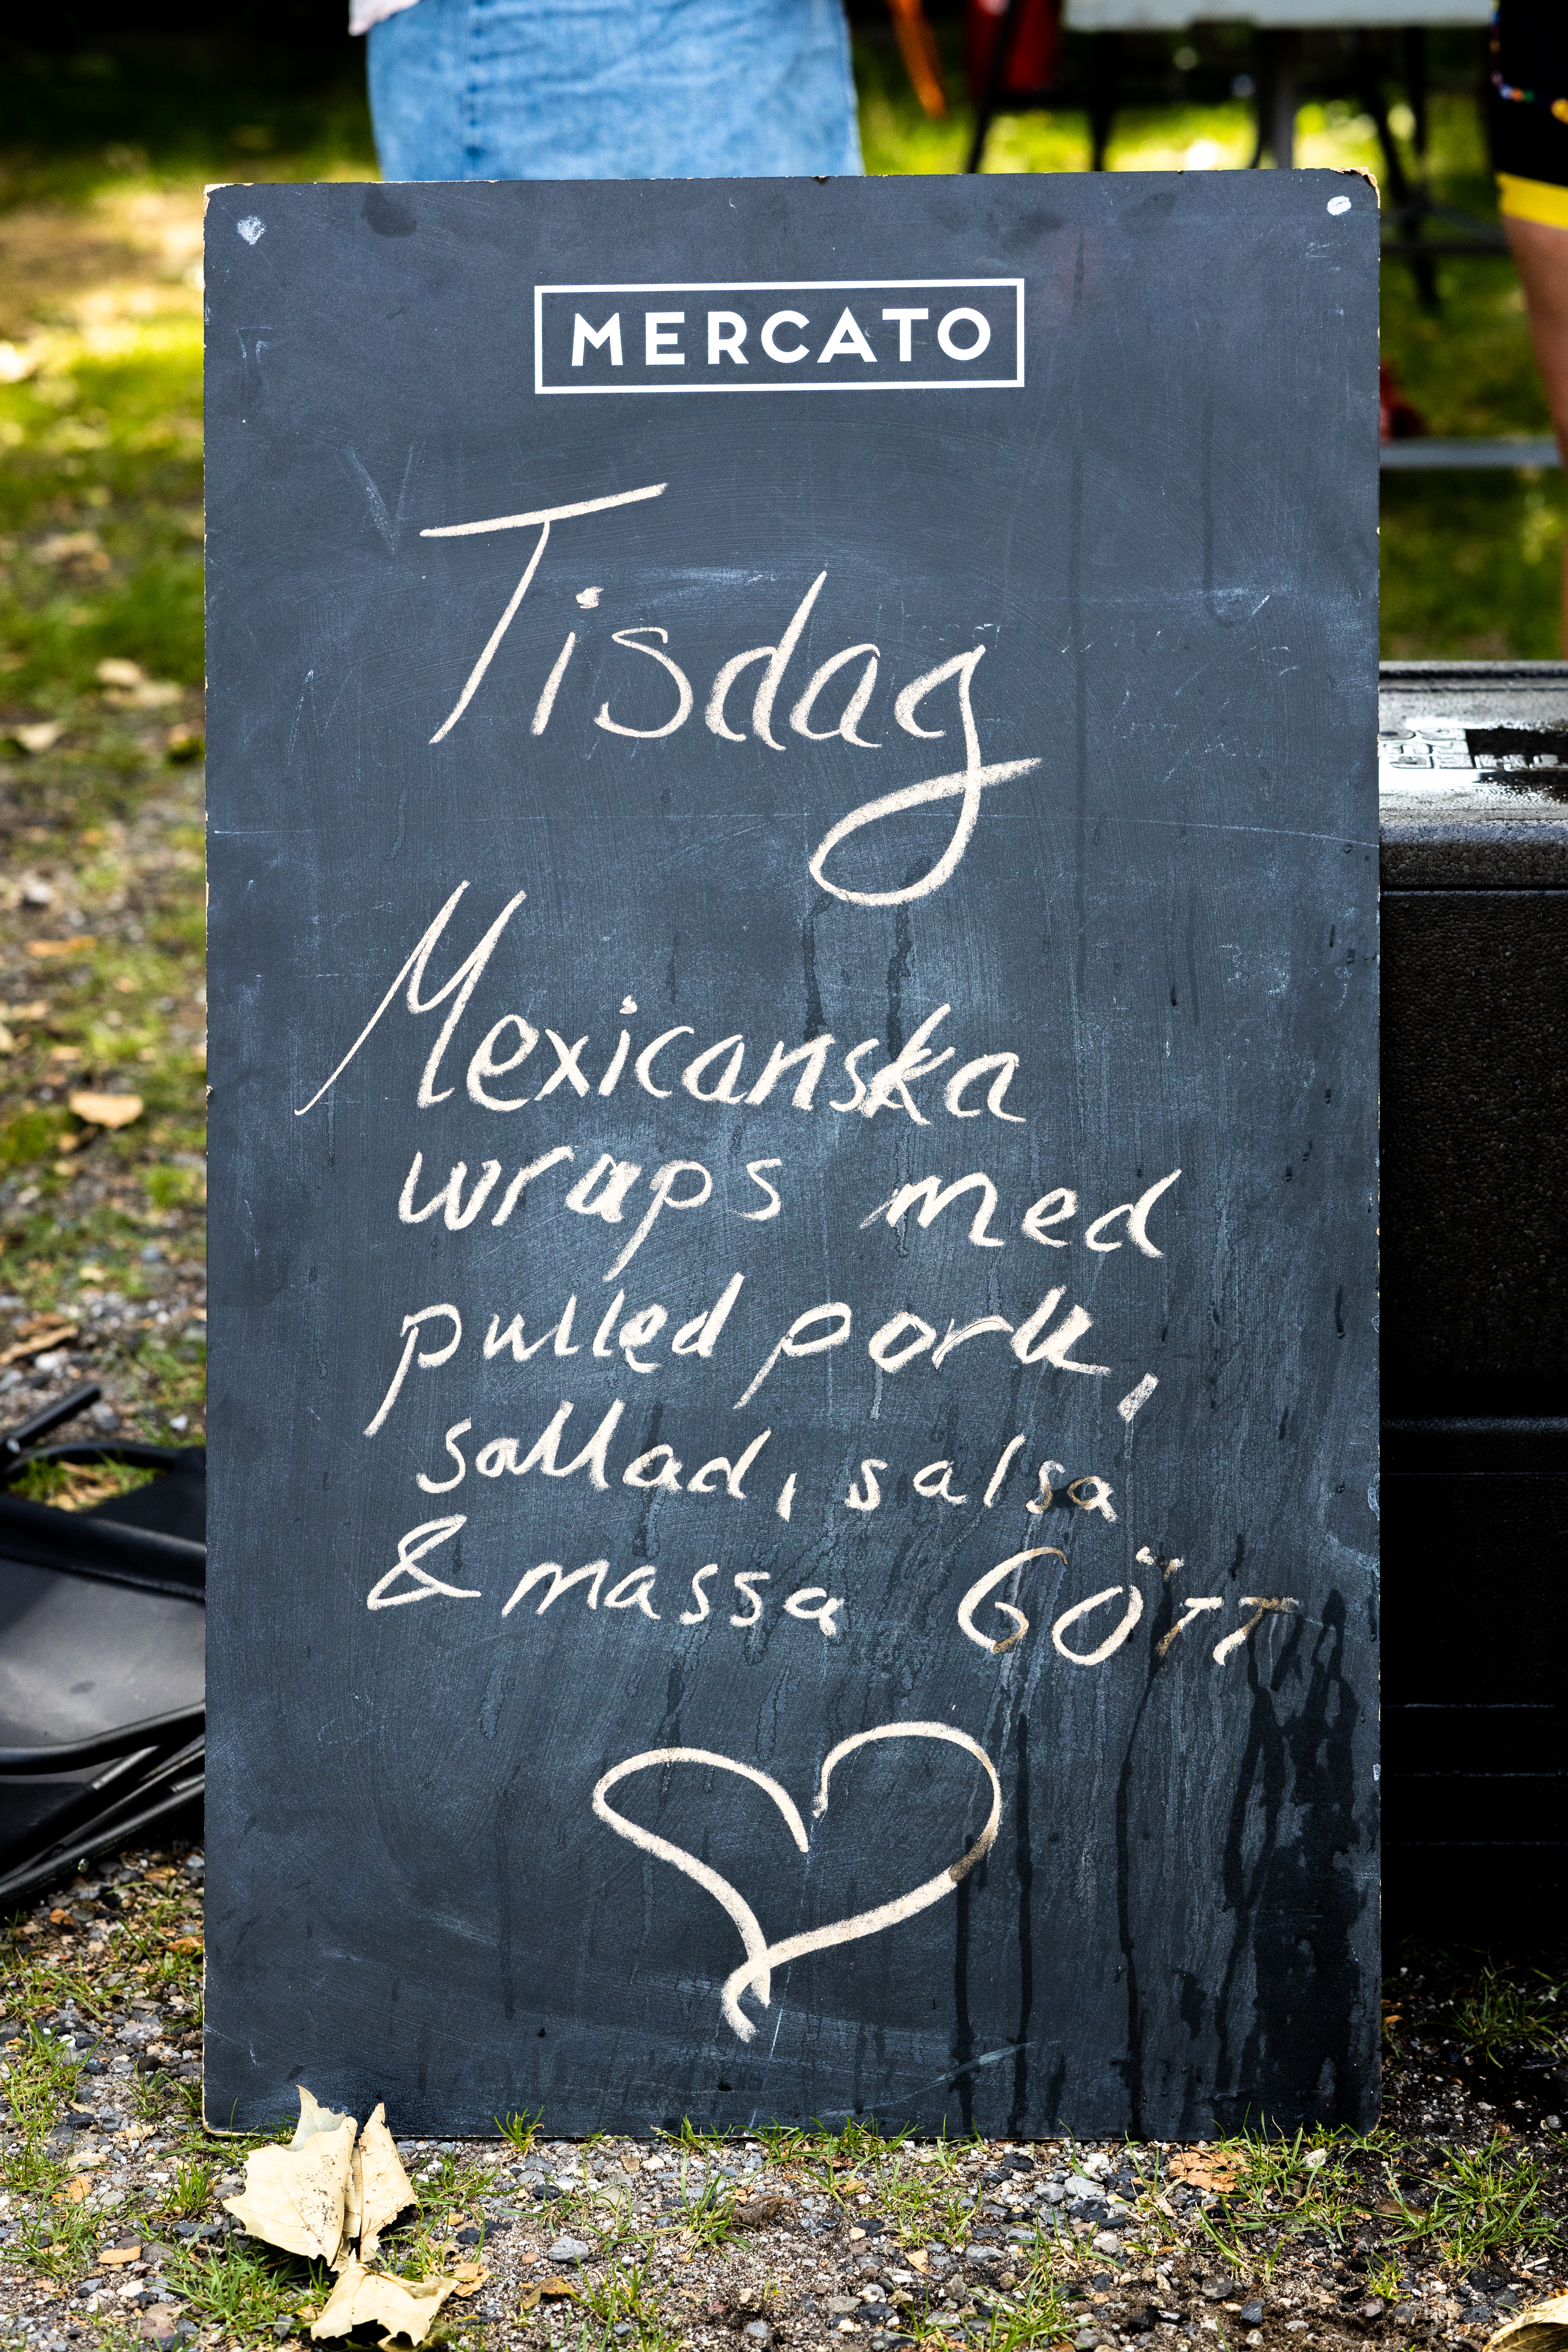 MERCATO
Tisdag
Mexicanska
wraps med
pulled pork,
sallad, salsa
& massa GÖTT